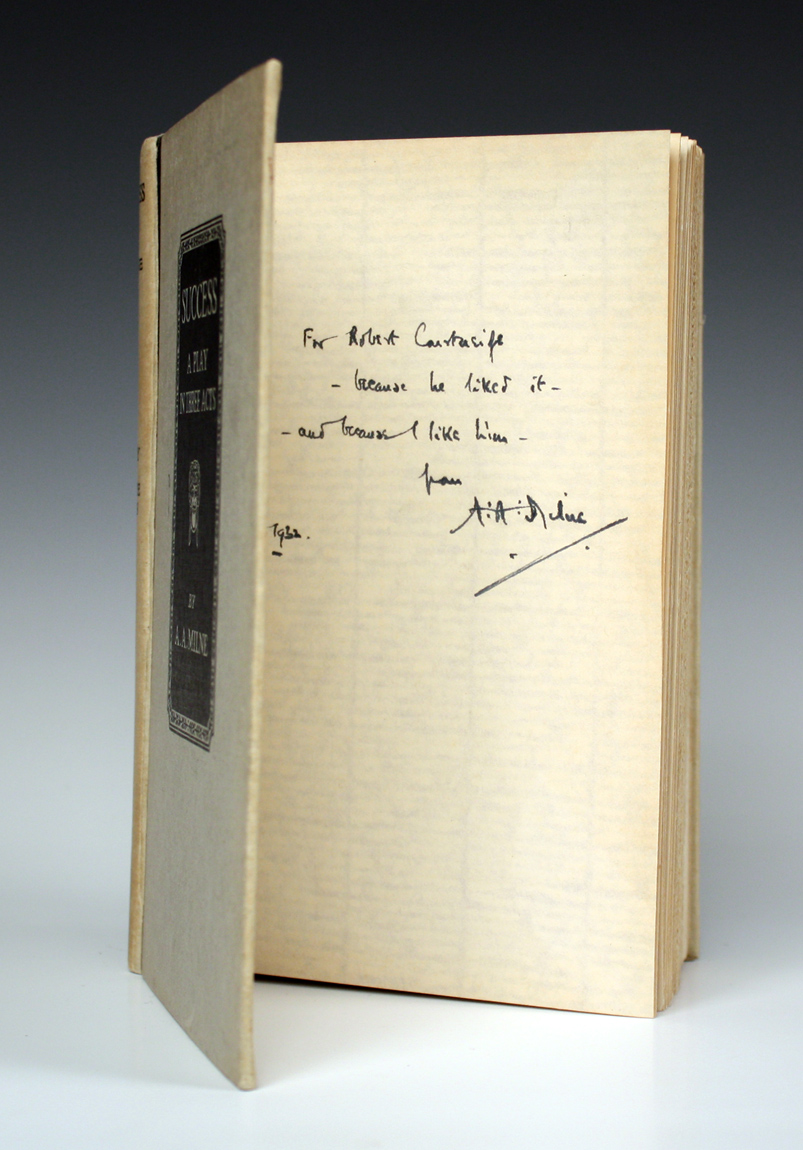 SUCCESS
A PLAY
IN THREE ACTS
BY
A. A. MILNE
For Robert
– because he liked it –
– and because I like him –
from
A. A. Milne